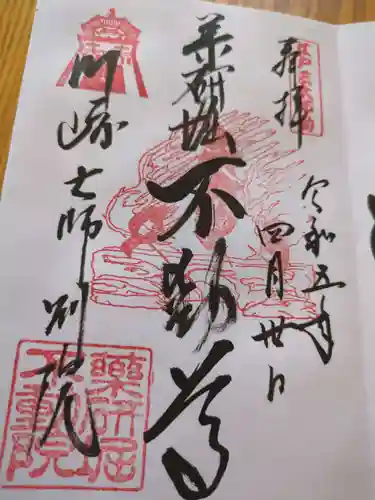 奉拝
令和五年
四月廿日
薬研堀
不動尊
川崎大師別院
薬研堀
不動院